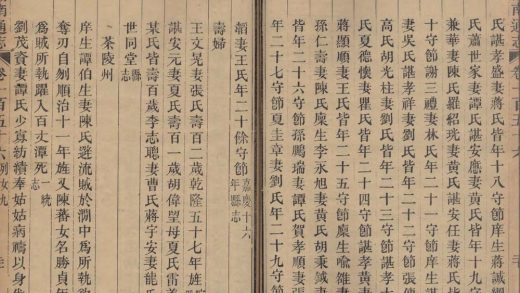 通志
卷一百五
諶孝盛妻蔣氏皆年十八守節生員蔣誠綱
氏蕭世家妻譚氏諶安應妻黃氏皆年十九
兼華妻陳氏羅紹琥妻黃氏諶安任妻蔣氏皆
十守節謝三禮妻林氏年二十一守節庠生諶
妻吳氏諶孝祥妻劉氏皆年二十二守節張傳
高氏胡光柱妻劉氏皆年二十三守節諶孝
氏夏德懷妻瞿氏皆年二十四守節諶孝黃妻
蔣顯順妻王氏皆年二十五守節廩生喻雛妻
年二十六守節孫鵬瑞妻譚氏賀孝順妻諶
孫仁壽妻陳氏廩生李永旭妻黃氏胡秉諴妻
年二十七守節夏圭章妻劉氏年二十九守節
韜妻王氏年二十餘守節嘉慶十六年縣志
壽婦
王文冕妻張氏壽百二歲乾隆五十七年旌
諶安元妻夏氏壽百一歲胡偉望母夏氏雷善
某氏皆壽百歲李志聰妻曹氏蔣宇安妻龍氏
世同堂縣志
茶陵州
庠生譚伯生妻陳氏避流賊於澗中為所執欲
奪刃自刎順治十一年旌又陳蕃女名勝貞年
為賊所執躍入百丈潭死一統志
劉茂資妻譚氏少寡紡績奉姑姑病禱以身
南通志
卷一百五十六
列女九